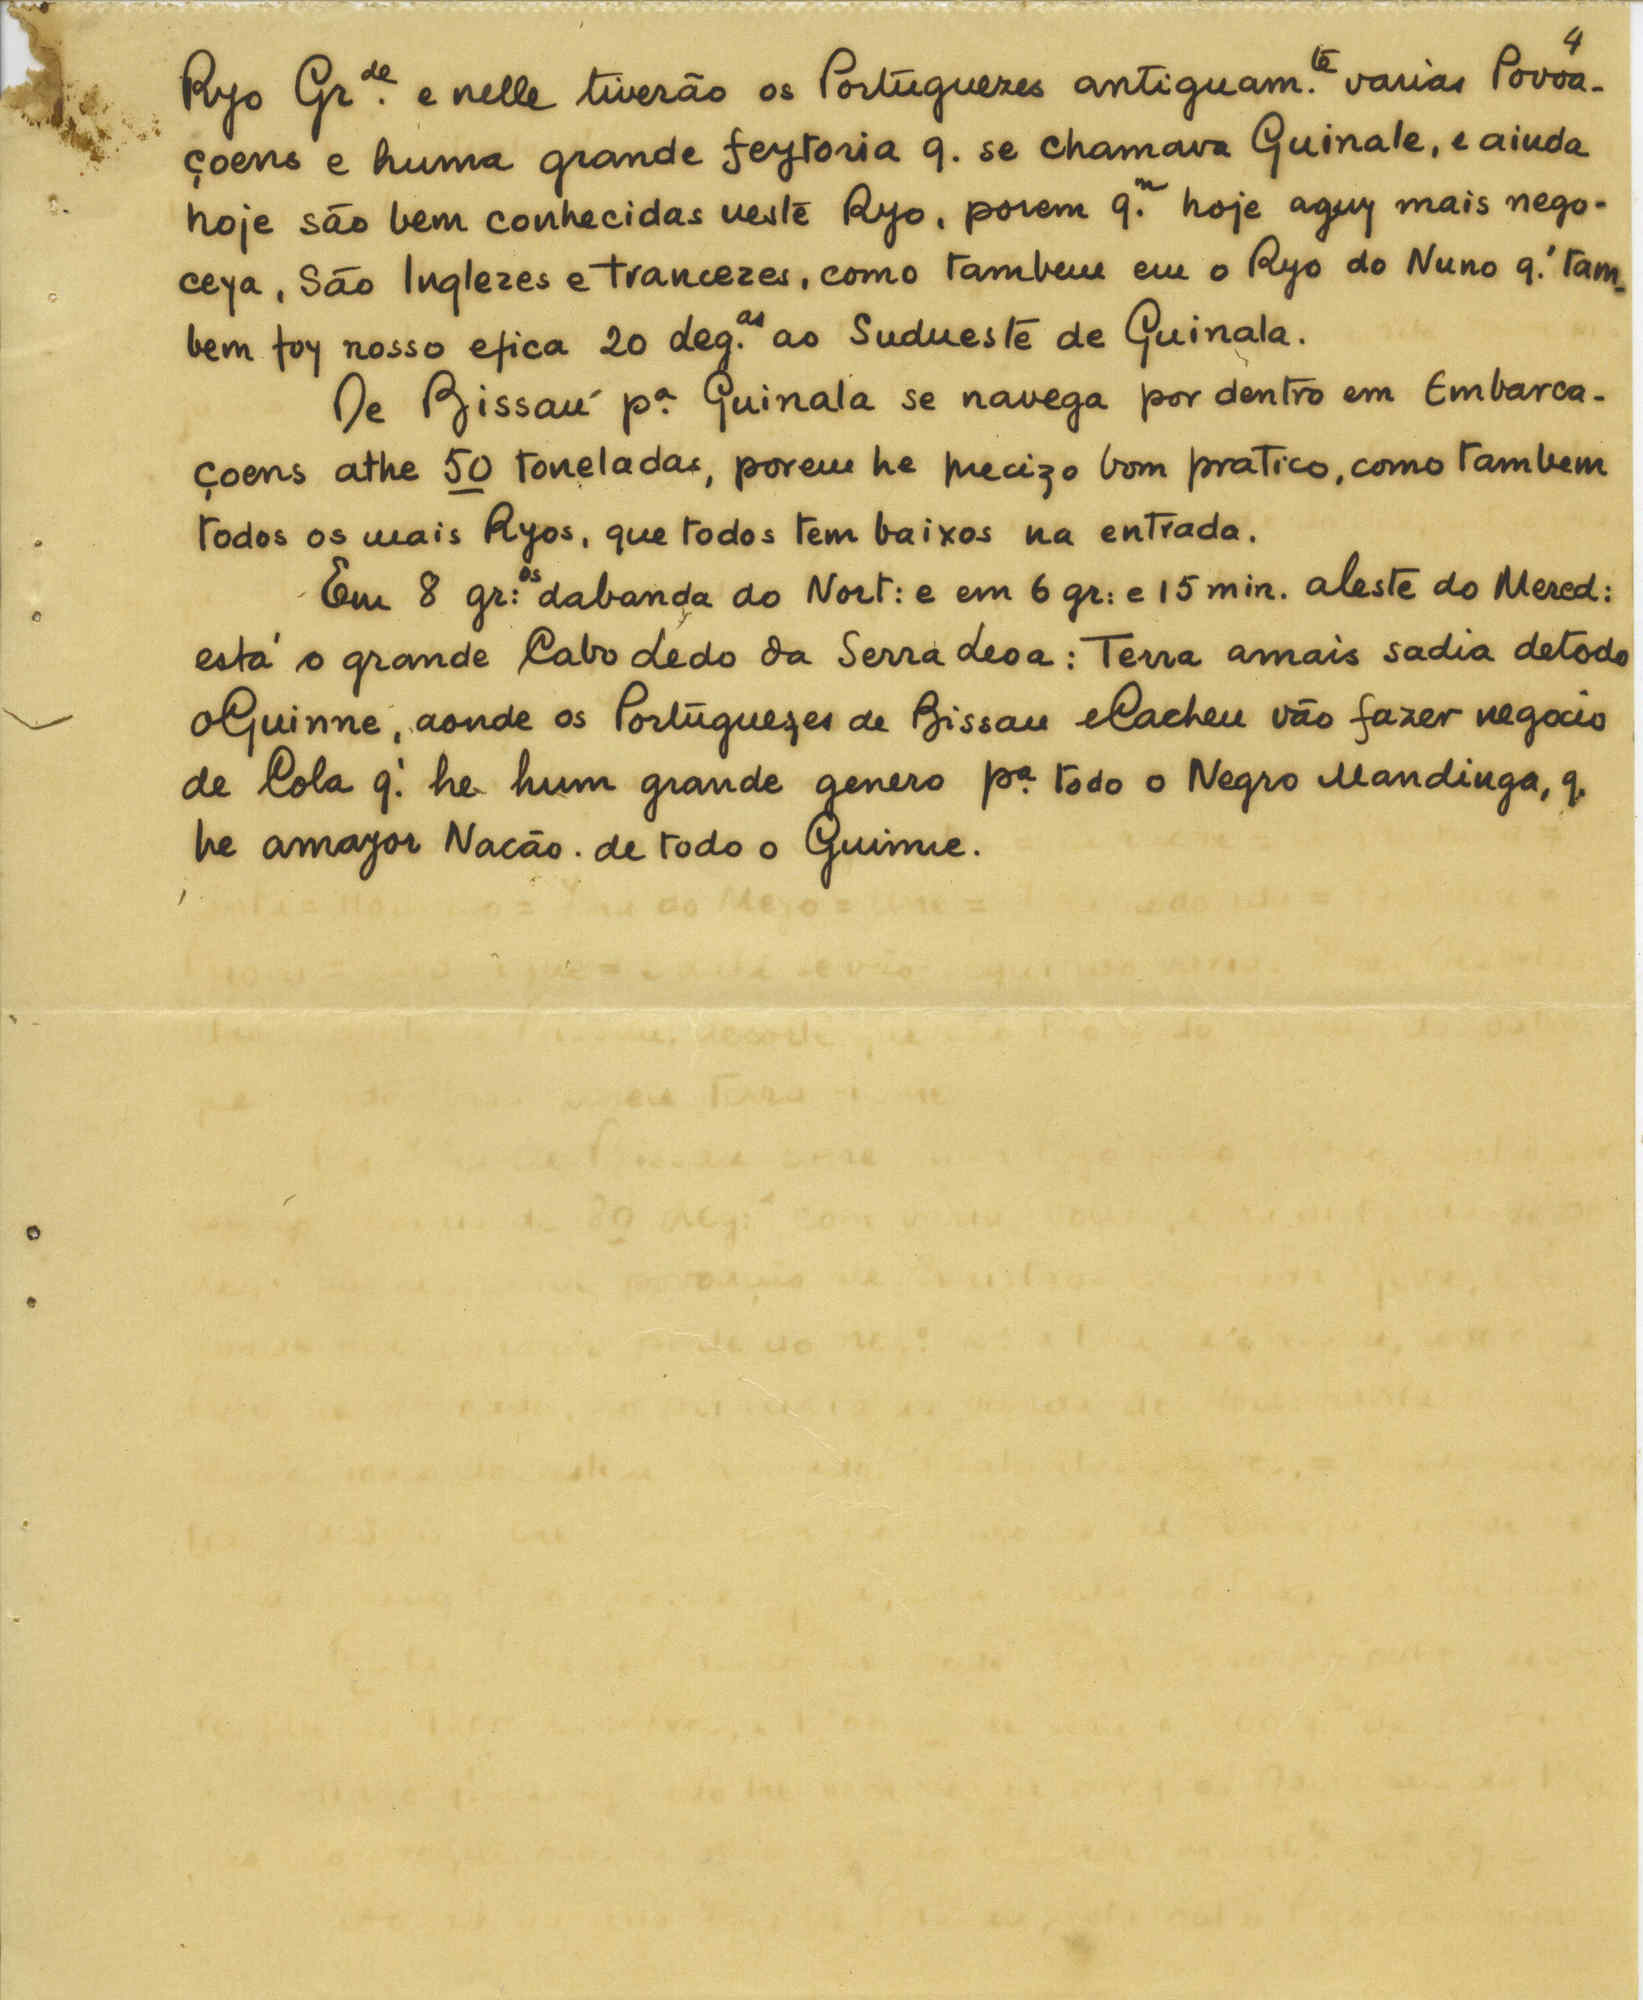 4
Ryo Gr.de e nelle tiverão os Portuguezes antiguam.te varias Povoa-
çoens e huma grande feytoria q. se chamava Guinale, e ainda
hoje são bem conhecidas neste Ryo, porem q.m hoje aquy mais nego-
ceya, São Inglezes e francezes, como tambem em o Ryo do Nuno q.' tam-
bem foy nosso efica 20 deg.as ao Sudueste de Guinala.
De Bissau' p.a Guinala se navega por dentro em Embarca-
çoens athe 50 toneladas, porem he precizo bom pratico, como tambem
todos os mais Ryos, que todos tem baixos na entrada.
Em 8 gr:os dabanda do Nort: e em 6 gr: e 15 min. aleste do Mered:
está o grande Cabo Ledo da Serra Leoa: Terra amais sadia detodo
oGuinne, aonde os Portuguezes de Bissau eCacheu vão fazer negocio
de Cola q.' he hum grande genero p.a todo o Negro Mandinga, q.
he amayor Nacão. de todo o Guinne.